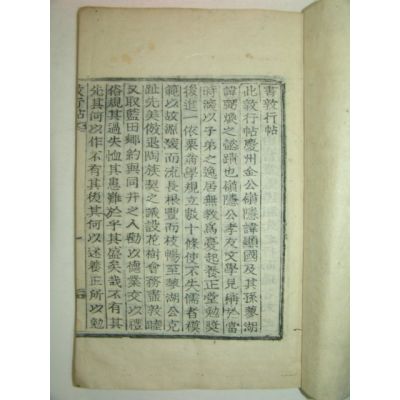 書敦行帖
此敦行帖慶州金公嶺隱諱顯國及其孫蓼湖
諱弼煥之懿蹟也嶺隱公孝友文學見稱於當
時演以子弟之逸居無教爲憂起養正堂勉奬
後進一依栗翁學規立數十條使不失儒者模
範以故源濬而流長根豐而枝暢至蓼湖公克
趾先美倣退陶族契之議設花樹會務盡敦睦
又取藍田鄕約與同井之人勸以德業交以禮
俗規其過失恤其患難於乎其盛矣哉不有其
先其何以作不有其後其何以述養正所以勉
敦行帖